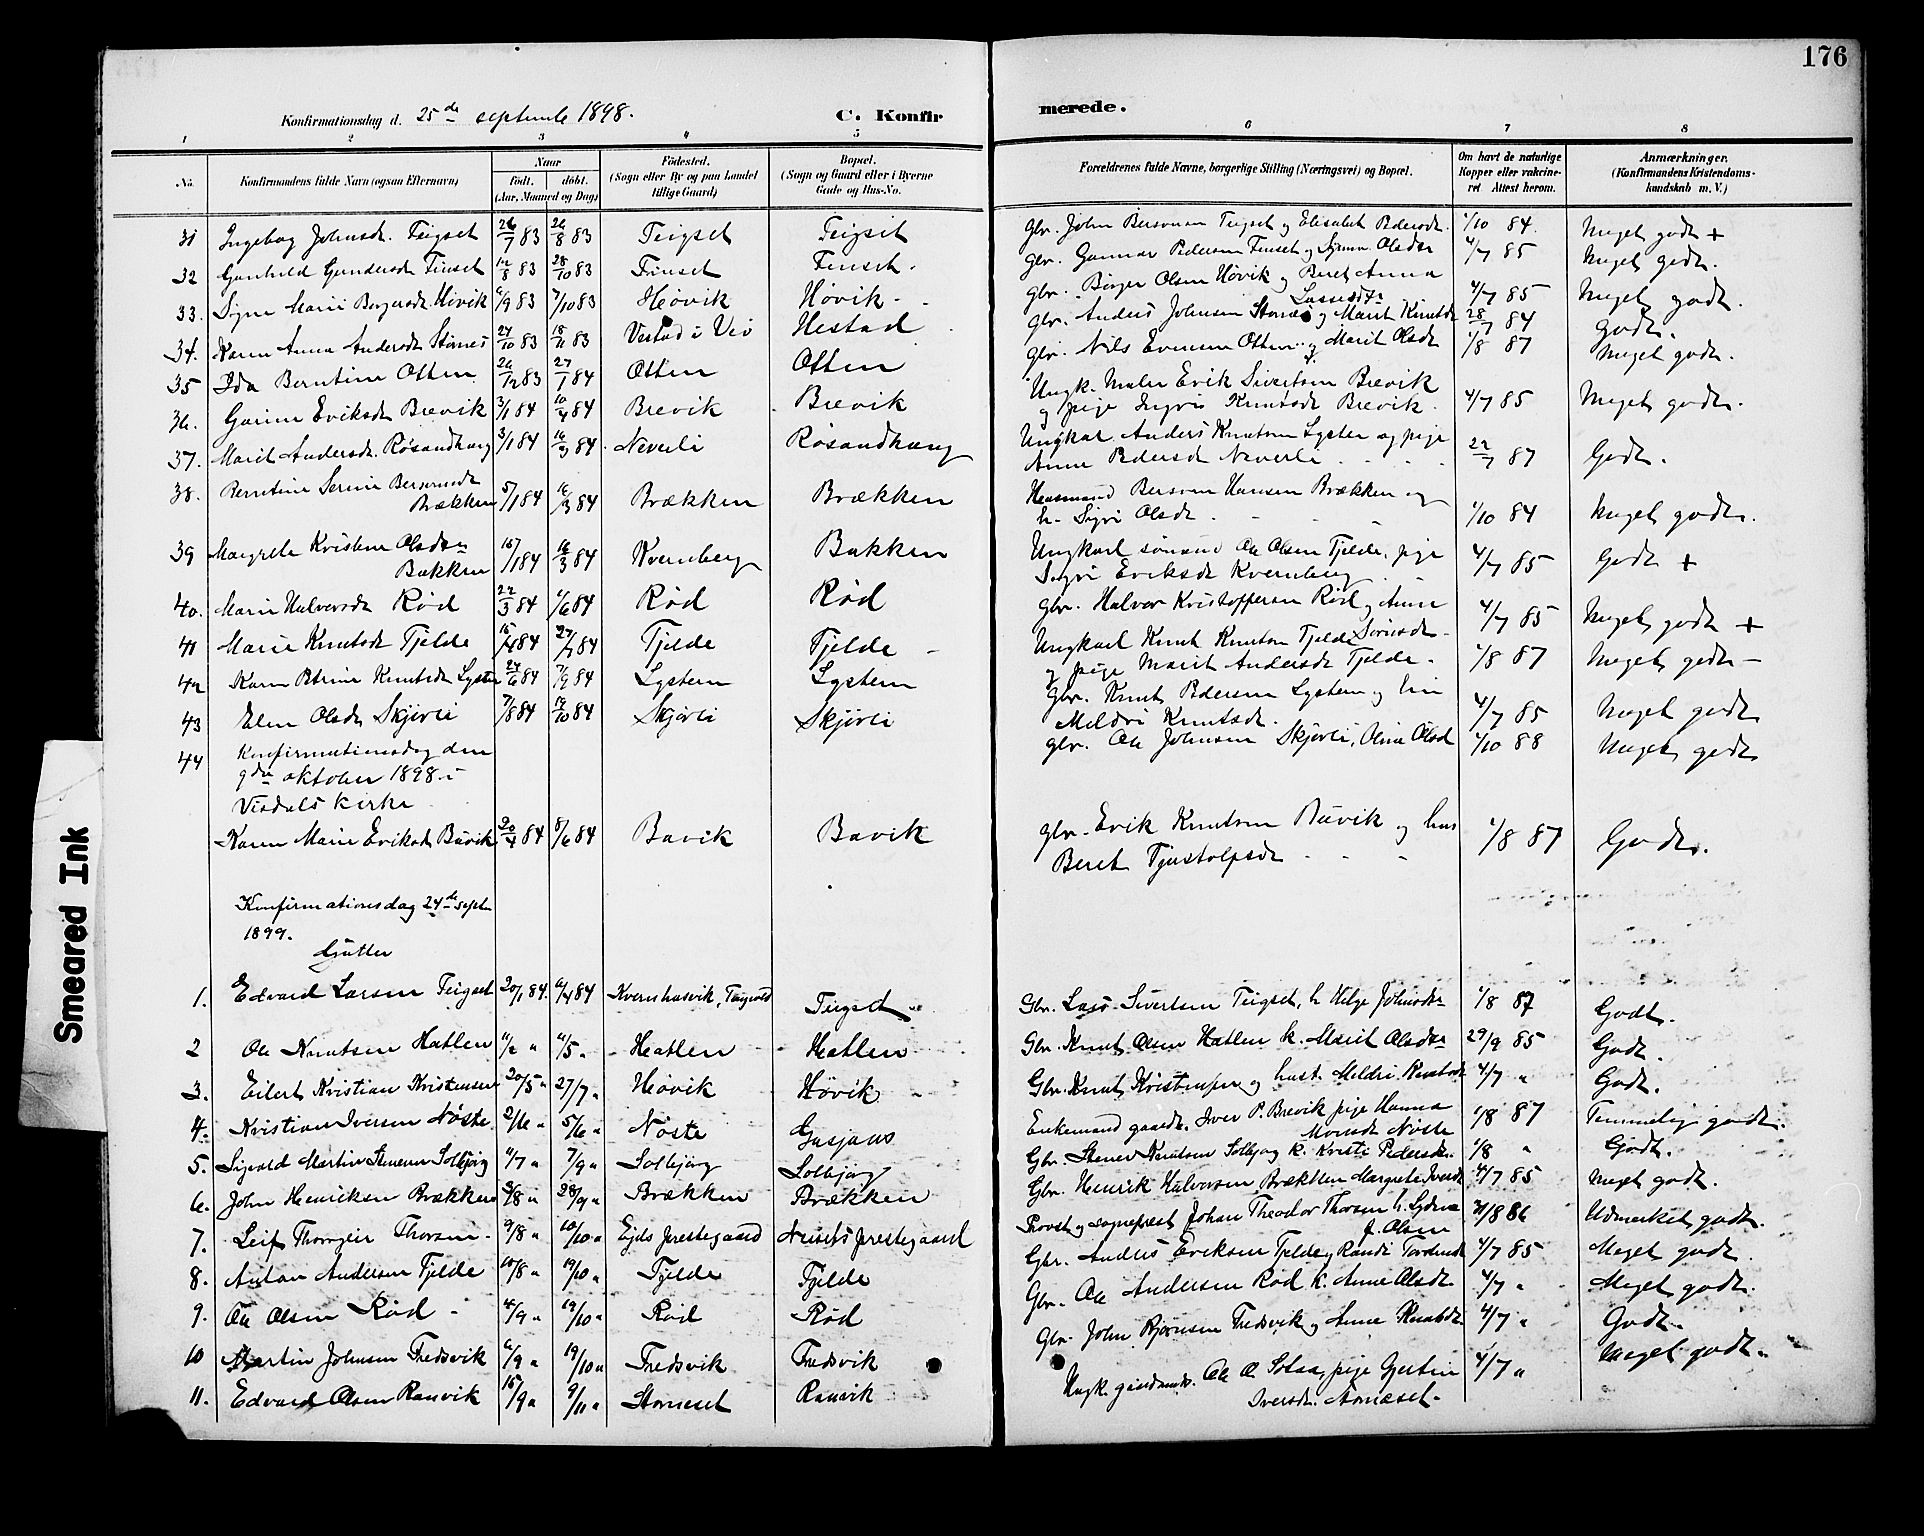 176
Konfirmationsdag d. 25de septembr 1898.
C. Konfirmerede.
1 2 3 4 5 6 7 8
No. Konfirmandens fulde Navn (ogsaa Efternavn) Naar födt. döbt. (Aar, Maaned og Dag) Födested. (Sogn eller By og paa Landet tillige Gaard) Bopæl. (Sogn og Gaard eller i Byerne Gade og Hus-No. Forældrenes fulde Navne, borgerlige Stilling (Næringsvei) og Bopæl. Om havt de naturlige Kopper eller vakcineret Attest herom. Anmærkninger. (Konfirmandens Kristendomskundskab m. V.)
31 Ingebog Johnsdt. Teigset 26/7 83 26/8 83 Teigset Teigset Gbr. John Bersvensen Teigset og Elisabet Pedersdt. 1/10 84. Meget godt +
32 Gunhild Gundersdt Finset 12/8 83 28/10 83 Finset Finset. Gbr. Gunnar Pedersen Finset og Olsdtr 4/7 85 Meget godt.
33. Signe Marie Borgersdt. Hövik 6/9 83 7/10 83 Hövik Hövik Gbr. Börger Olsen Hövik og Beret Anna Lassesdtr 4/7 85 Meget godt.
34. Karen Anna Andersdt Stornes 24/10 83 18/11 83 Vestad i Veö Hestad Gbr. Anders Johnsen Stornes og Marit Knutsdt 28/7 84 Godt.
35 Ida Berntine Otten 26/12 83 27/1 84 Otten Otten Gbr. Nils Evensen Otten og Marit Olsdt 1/8 87 Meget godt.
36. Gurine Eriksdt Brevik 3/1 84 10/4 84 Brevik Brevik Ungk. Maler Erik Sivertsen Brevik
og pige Ingri Knutsdt Brevik. 4/7 85 Meget godt.
37. Marit Andersdt. Røsandhaug 3/1 84 16/3 84 Neverli Røsandhaug Ungkar Anders Knutsen Lysten og pige
Anne Pedersdt Neverli 22/7 87 Godt.
38. Berntine Serine Bersvensdt
Brækken 5/1 84 16/3 84 Brækken Brækken Husmand Bersven Hansen Brækken og
h. Sigri Olsdt 1/10 84 Meget godt.
39 Margrete Kristine Olsdtr
Bakken 15/1 84 16/3 84 Kvernberg Bakken Ungkarl sømand Ole Olsen Tjelde, pige
Sigri Eriksdt Kvernberg 4/7 85 Godt +
40. Marie Halvorsdt Rød 22/3 84 1/6 84 Rød Rød Gbr. Halvor Kristoffersen Rød og Anne
Sörensdt 4/7 85 Meget godt +
41 Marie Knutsdt Tjelde 15/4 84 27/7 84 Tjelde Tjelde Ungkarl Knut Knutsen Tjelde
og pige Marit Andersdt Tjelde. 1/8 87 Meget godt
42 Karen Petrine Knutsdt Lysten 24/6 84 7/9 84 Lysten Lysten Gbr. Knut Pedersen Lysten og hu
Meldri Knutsdt. 4/7 85 Meget godt
43 Elen Olsdt Skjørli 7/8 84 12/10 84 Skjørli Skjørli Gbr. Ole Johnsen Skjørli, Oline Olsd 1/10 88 Meget godt
44 Konfirmationsdag den
9de oktober 1898 i
Visdals kirke
Karen Marie Eriksdt Buvik 20/4 84 8/6 84 Buvik Buvik Gbr. Erik Knutsen Buvik og hus
Beret Tjøstolfsdt 1/8 87 Godt.
Konfirmationsdag 24de septbr
1899.
Gutter
1. Edvard Larsen Teigset 20/1 84. 6/4 84 Kvernhusvik, Tingvold Teigset Gbr. Lars Sivertsen Teigset, h Helge Johnsdtr 1/8 87 Godt.
2 Ole Knutsen Hatlen 11/2 " 11/5 " Hatlen Hatlen Gbr. Knut Olsen Hatlen k. Marit Olsdtr 29/9 85 Godt.
3. Eilert Kristian Kristensen 20/5 " 27/7 " Hövik Hövik Gbr. Knut Kristensen og hust. Meldri Knutsdt 4/7 " Godt.
4. Kristian Iversen Nöste 2/6 " 5/6 " Nöste Gusjaas Enkemand gaardbr. Iver P. Brevik pige Hanna
Monsdt Nöste 1/8 87 Temmelig godt.
5. Sigvald Martin Stenersen Solbjørg 4/7 " 7/9 " Solbjørg Solbjørg Gbr. Stener Knutsen Solbjørg k. Kristi Pedersdt. 1/8 " Godt.
6. John Henriksen Brækken 3/8 " 28/9 " Brækken Brækken Gbr. Henrik Halvorsen Brækken Margrete Iversdt 4/7 85 Meget godt.
7. Leif Thorgeir Thorsen 9/8 " 10/10 " Ejds prestegaard Nessets prestegaard Provst og sogneprest Johan Theodor Thorsen h. Lydine
J. Olsen 31/8 86 Udmerket godt.
8. Anton Andersen Tjelde 10/8 " 19/10 " Tjelde Tjelde Gbr. Anders Eriksen Tjelde og Randi Tordsdt 4/7 85 Meget godt
9. Ole Olsen Rød 4/9 " 19/10 " Rød Rød Gbr. Ole Andersen Rød k. Anne Olsdt 4/7 " Meget godt.
10 Martin Johnsen Fredsvik 6/9 " 19/10 " Fredsvik Fredsvik Gbr. John Bjørnsen Fredsvik og Anne Knutsdt 4/7 " Godt.
11. Edvard Olsen Ranvik 15/9 " 9/11 " Storneset Ranvik Ungk. Ole O. Sotaa, pige Gjertine
Iversdt. Storneset. 4/7 " Meget godt.
Smeared Ink